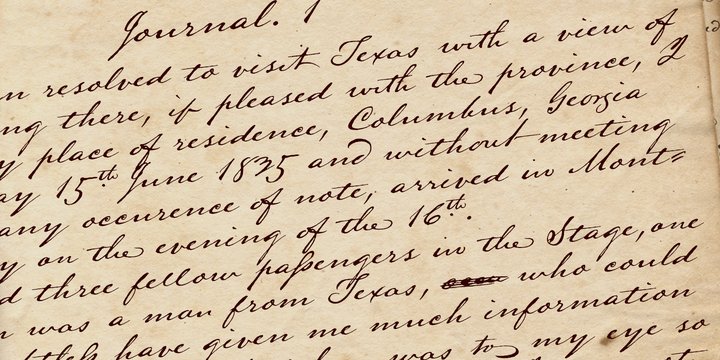 Journal. 1
n resolved to visit Texas with a view of
ng there, if pleased with the province, I
y place of residence, Columbus, Georgia
ay 15th June 1835 and without meeting
any occurence of note, arrived in Mont=
y on the evening of the 16th.
d three fellow passengers in the Stage, one
n was a man from Texas, who could
ttless have given me much information
was to my eye so